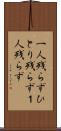 一人残らずひ
とり残らず１
人残らず